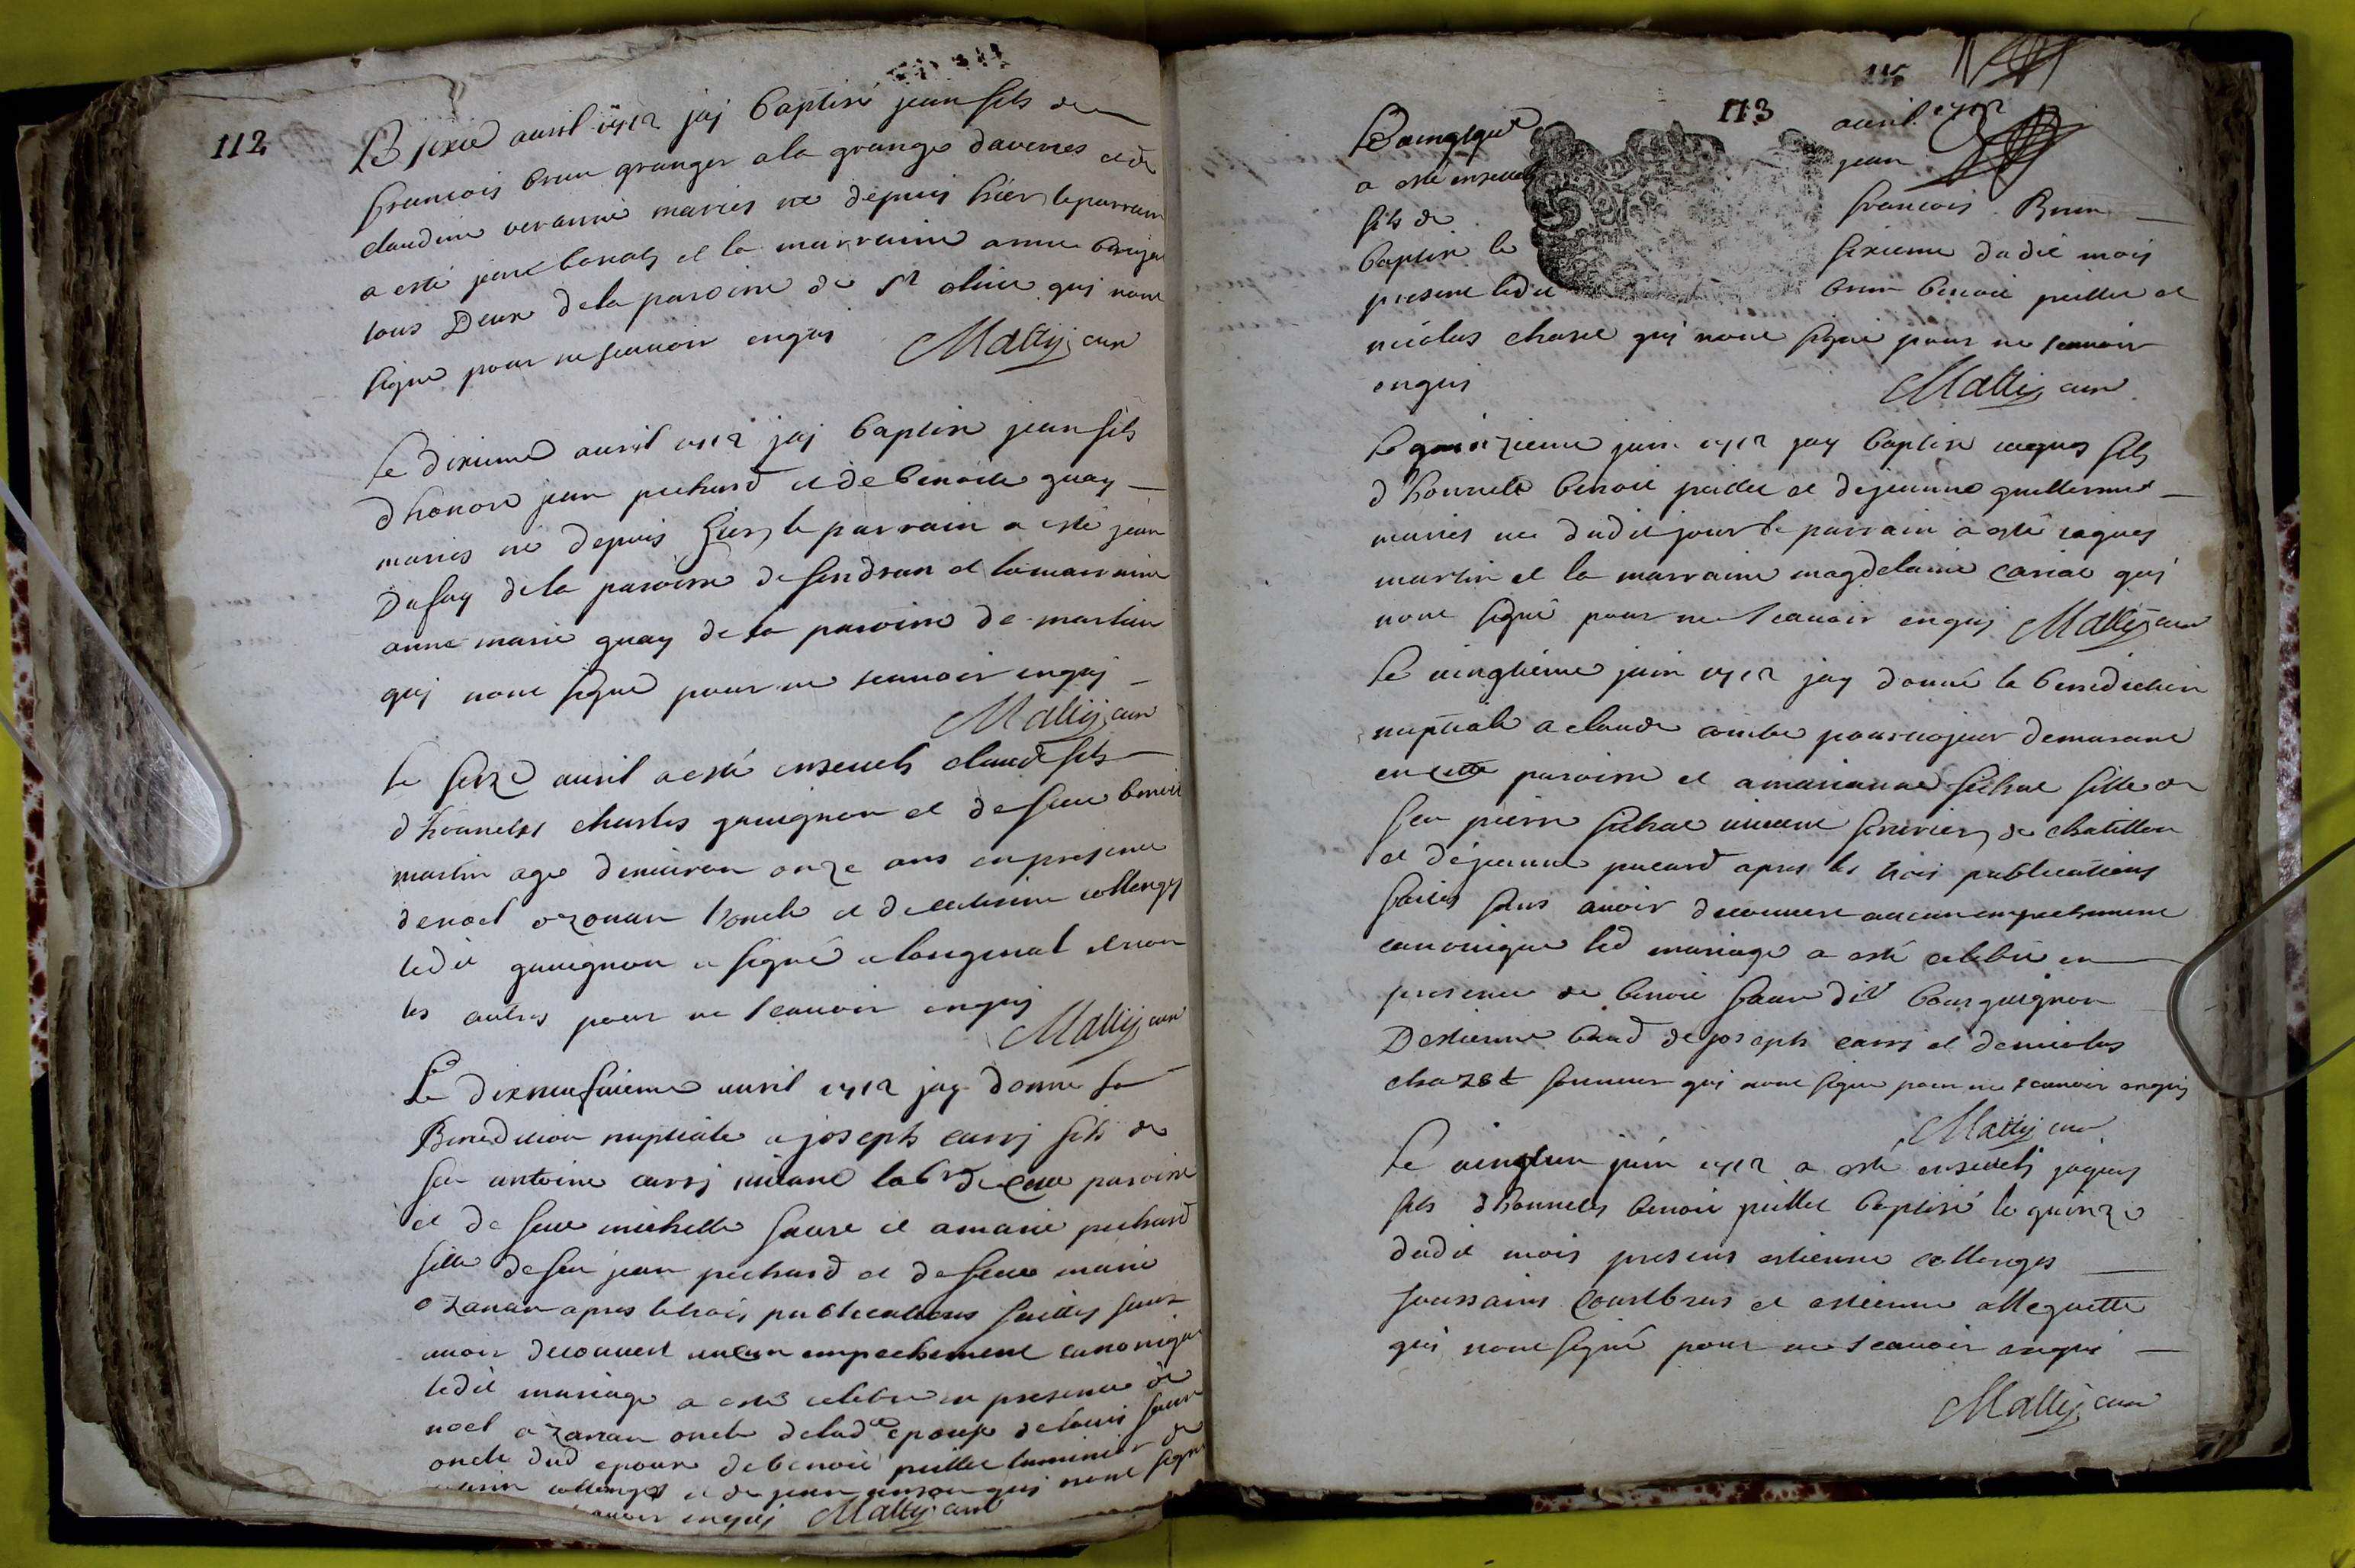 112
Le sixie avril 1712 jaj baptisé jean fils de
francois brun granger ala grange davenes et de
claudine veranne mariés né depuis hier, le parrain
a esté jean et la marraine anne
tous Deux dela paroisse de St olive qui nont
signe pour ne scauoir enquis Mattij curé
Le dixieme auril 1712 jaj baptise jean fils
dhonore jean pechard et de benoite guay
mariés né depuis hier, le parrain a esté jean
Dufay dela paroisse de sendran et la marraine
anne marie guay de la paroisse de marlieu
quj nont signe pour ne scauoir enquj
Mattij curé
le seize auril a esté enseuely claude fils
dhonnetes charles gauignon et de feue benoite
martin agé denuiron onze ans en presence
denoel ozanan loncle et de collonges
ledit gauignon a signé a loriginal et non
les autres pour ne scauoir enquj
Mattij curé
Le dixneufuieme auril 1712 jay donne la
Benediction nuptiale a joseph carrj fils de
feu antoine carrj viuant labr de cette paroisse
et de feue michelle faure et a marie pechard
fille de feu jean pechard et de feue marie
ozanan apres le trois publications faittes sans
auoir decouuert aucun empechement canonique
ledit mariage a esté celebre en presence de
noel ozanan oncle delade epouse de louis faure
oncle dud epoux de benoit peillet luminier de
collonges et de jean qui nont signe
enquis Mattij curé
113
auril 1712
Le
a esté enseuely jean
fils de francois Brun
baptisé le sixieme dudit mois
present ledit brun benoit peillet et
nicolas chasel quj nont signe pour ne scauoir
enquis Mattij curé
le quinzieme juin 1712 jay baptise jaques fils
dhonnete benoit peillet et dejeanne guillermet
mariés né dudit jour le parrain a esté jaques
martin et la marraine magdelaine cariat quj
nont signé pour ne scauoir enquj Mattij curé
Le vingtieme juin 1712 jay donné la benediction
nuptiale a claude demurant
en cette paroisse et a marianne sichat fille de
feu pierre sichat viuant de chatillon
et dejeanne pucard apres les trois publications
faites sans auoir decouuert aucun empechement
canonique led mariage a esté celebre en
presence de benoit faure dit bourguignon
Destienne baud dejoseph carrj et denicolas
chazet sonneur qui nont signe pour ne scauoir enquis
Mattij curé
Le vingtun juin 1712 a esté enseuely jaques
fils dhonnetes benoit peillet baptisé le quinze
dudit mois presens estienne collonges
toussains courtbras et estienne alleguette
quj nont signé pour ne scauoir enquis
Mattij curé